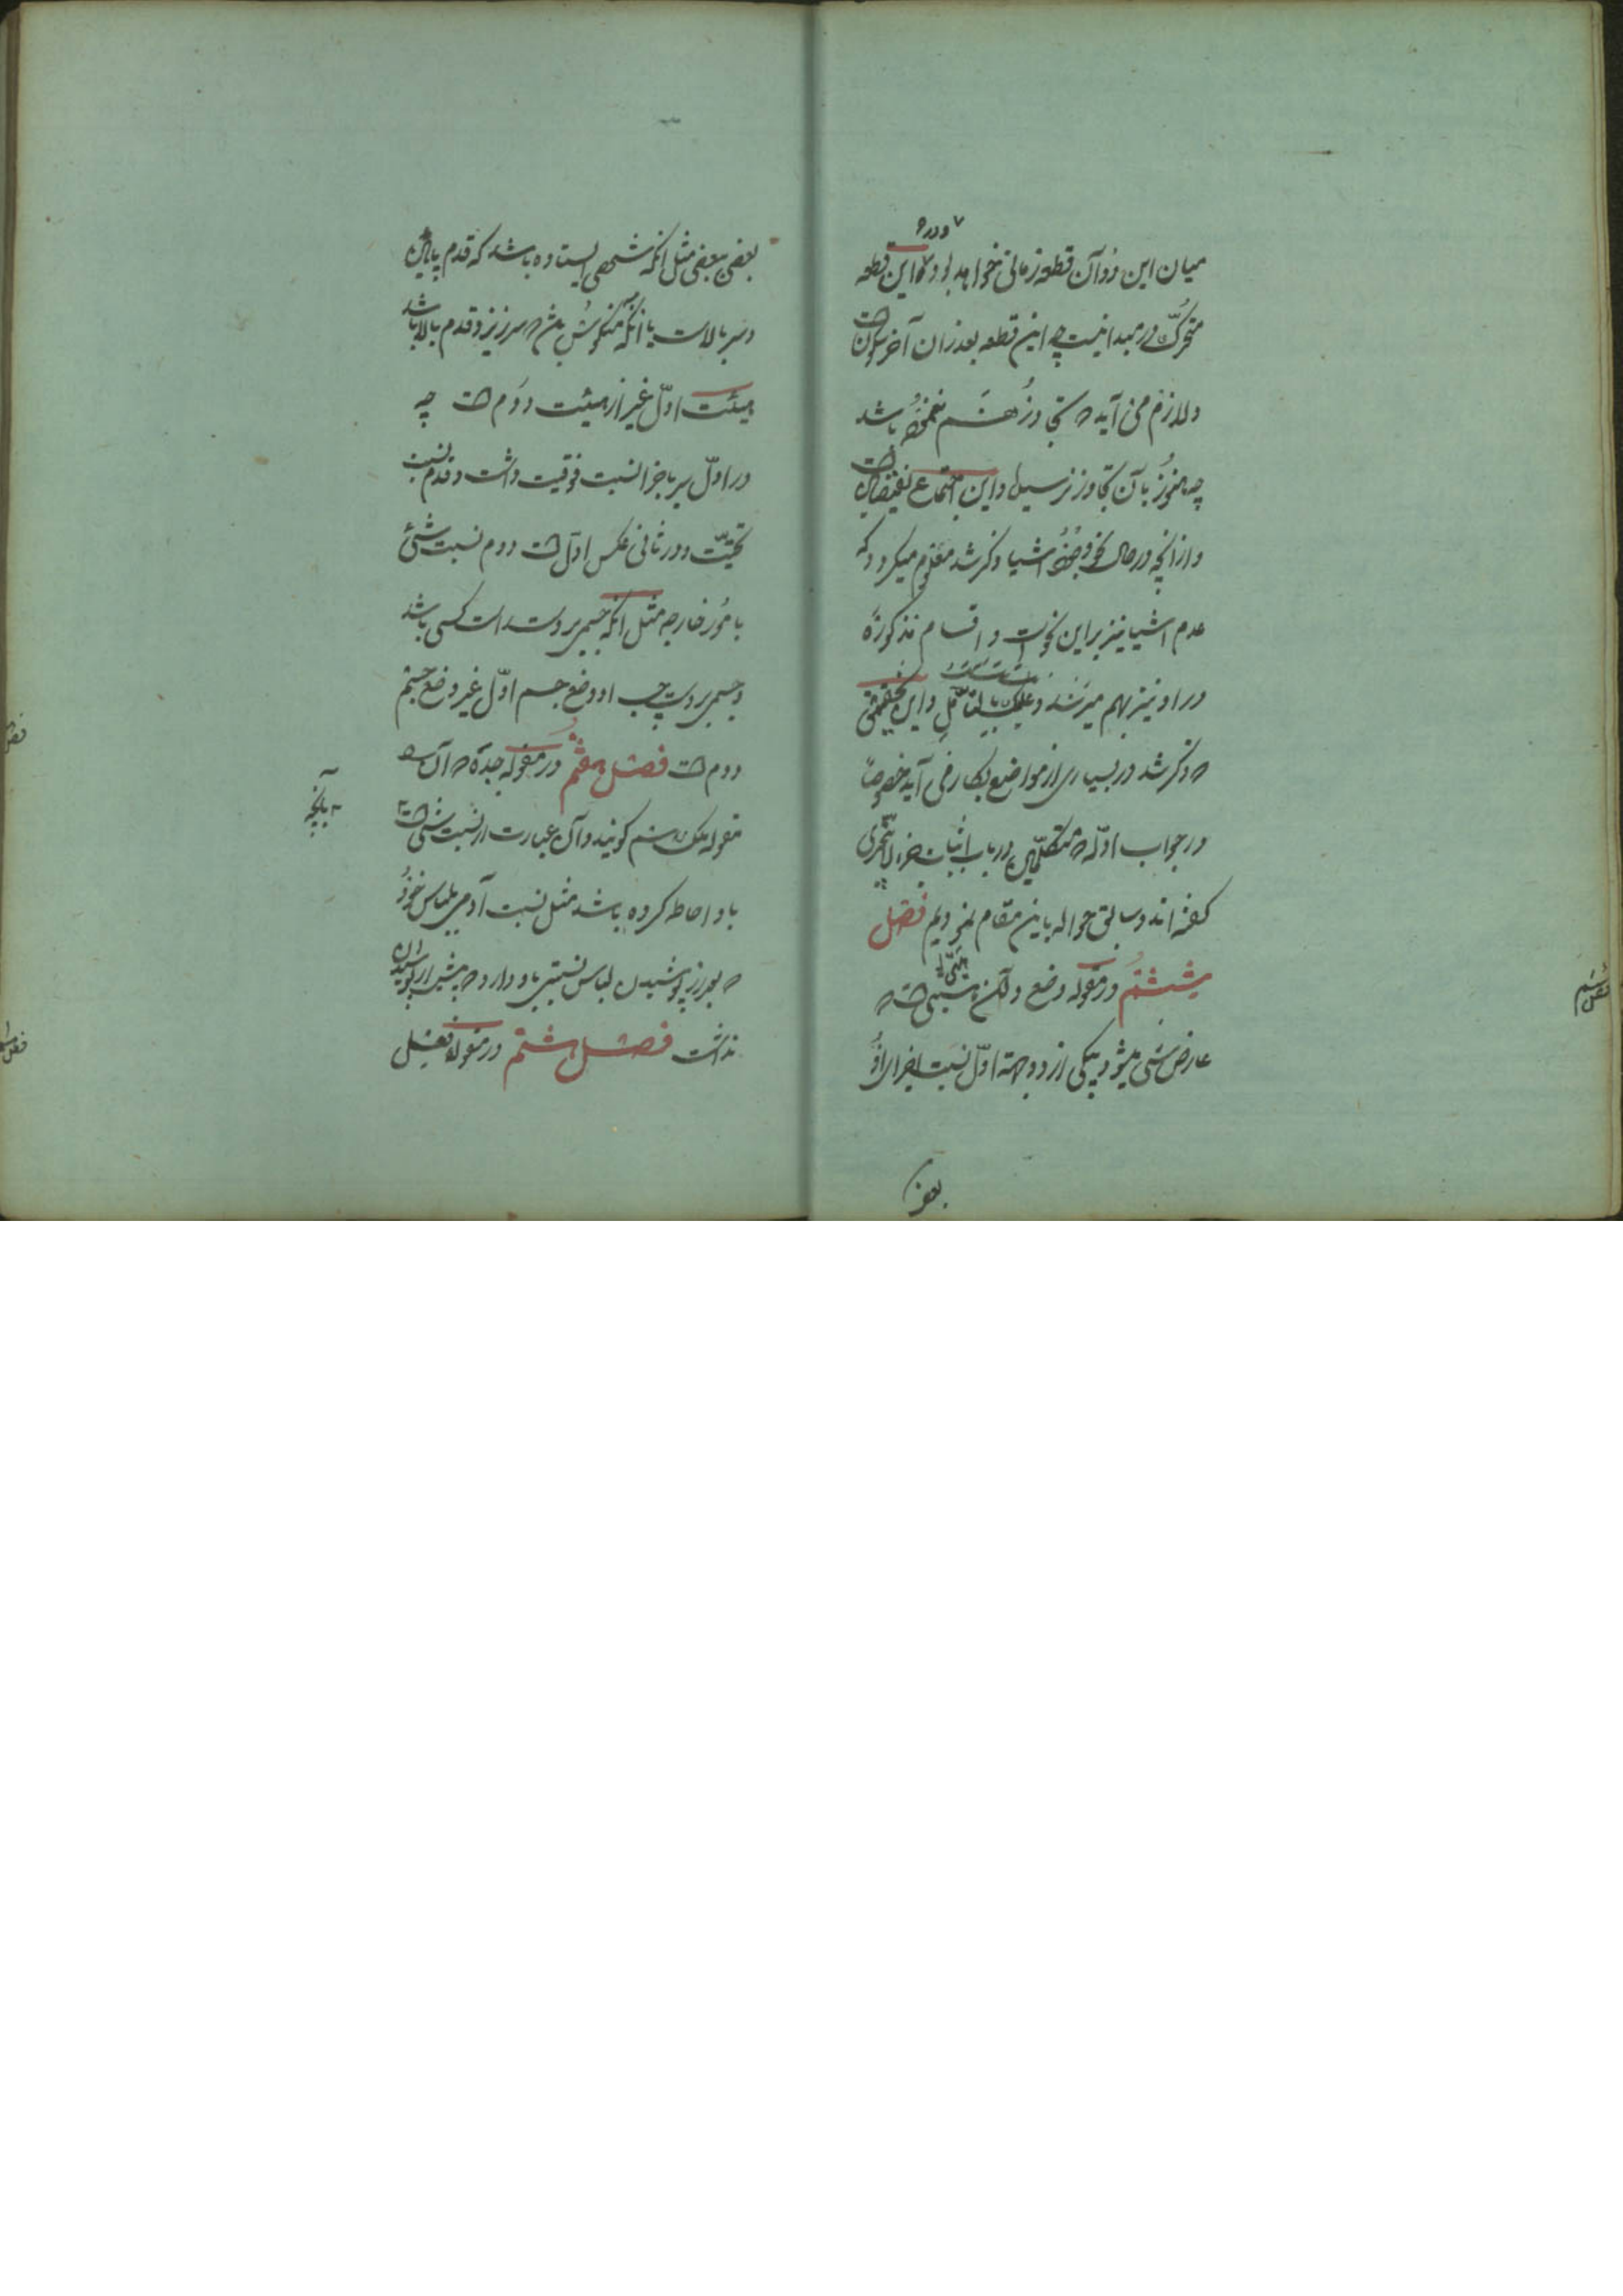 میان این دو آن قطعه زمانی خواهد بود و در این قطعه
متحرک در مبدا نیست چه این قطعه بعد از آن آخر سکون است
و لازم می آید که تجاوز هم نموده باشد
چه هنوز بآن تجاوز نرسیده و این اجتماع نقیضان است
و از آنچه در حال نحو وجود اشیا ذکر شد معلوم میگردد که
عدم اشیا نیز بر این نحو است و اقسام مذکوره
در او نیز بهم میرسد و علیک بالتأمل و این تحقیقی
که ذکر شد در بسیاری از مواضع بکار می آید خصوصاً
در جواب ادلّه که متکلمان در باب اثبات جزء لا یتجزی
گفته اند و سابق حواله باین مقام نمودیم فصل
ششم در مقوله وضع و آن هیئتی است که
عارض شی میشود بیکی از دو جهة اوّل نسبت اجزای او
بعضی
بعضی ببعضی مثل آنکه شخصی ایستاده باشد که قدم پایین
و سر بالاست یا آنکه منکوس باشد که سر زیر و قدم بالا باشد
هیئت اوّل غیر از هیئت دوم است چه
در اوّل سر باجزا نسبت فوقیت داشت و قدم نسبت
تحتیّت و در ثانی عکس اول است دوم نسبت شئ
بامور خارجه مثل آنکه جسمی بر دست راست کسی باشد
و جسمی بر دست چپ او وضع جسم اوّل غیر وضع جسم
دوم است فصل هفتم در مقوله جدة که آن را
مقوله ملک هم گویند و آن عبارت از نسبت شی است
بآنچه
باو احاطه کرده باشد مثل نسبت آدمی بلباس خود
که بعد از پوشیدن لباس نسبتی باو دارد که پیش از پوشیدن آن
نداشت فصل هشتم در مقوله فعل
فصل ششم